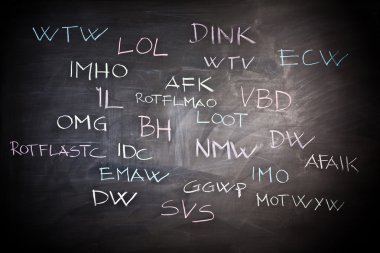 WTW LOL DINK
WTV ECW
IMHO AFK
IL ROTFLMAO VBD
OMG BH LOOT
ROTFLASTC IDC NMW DW AFAIK
EMAW GGWP IMO
DW SVS MOTWYW